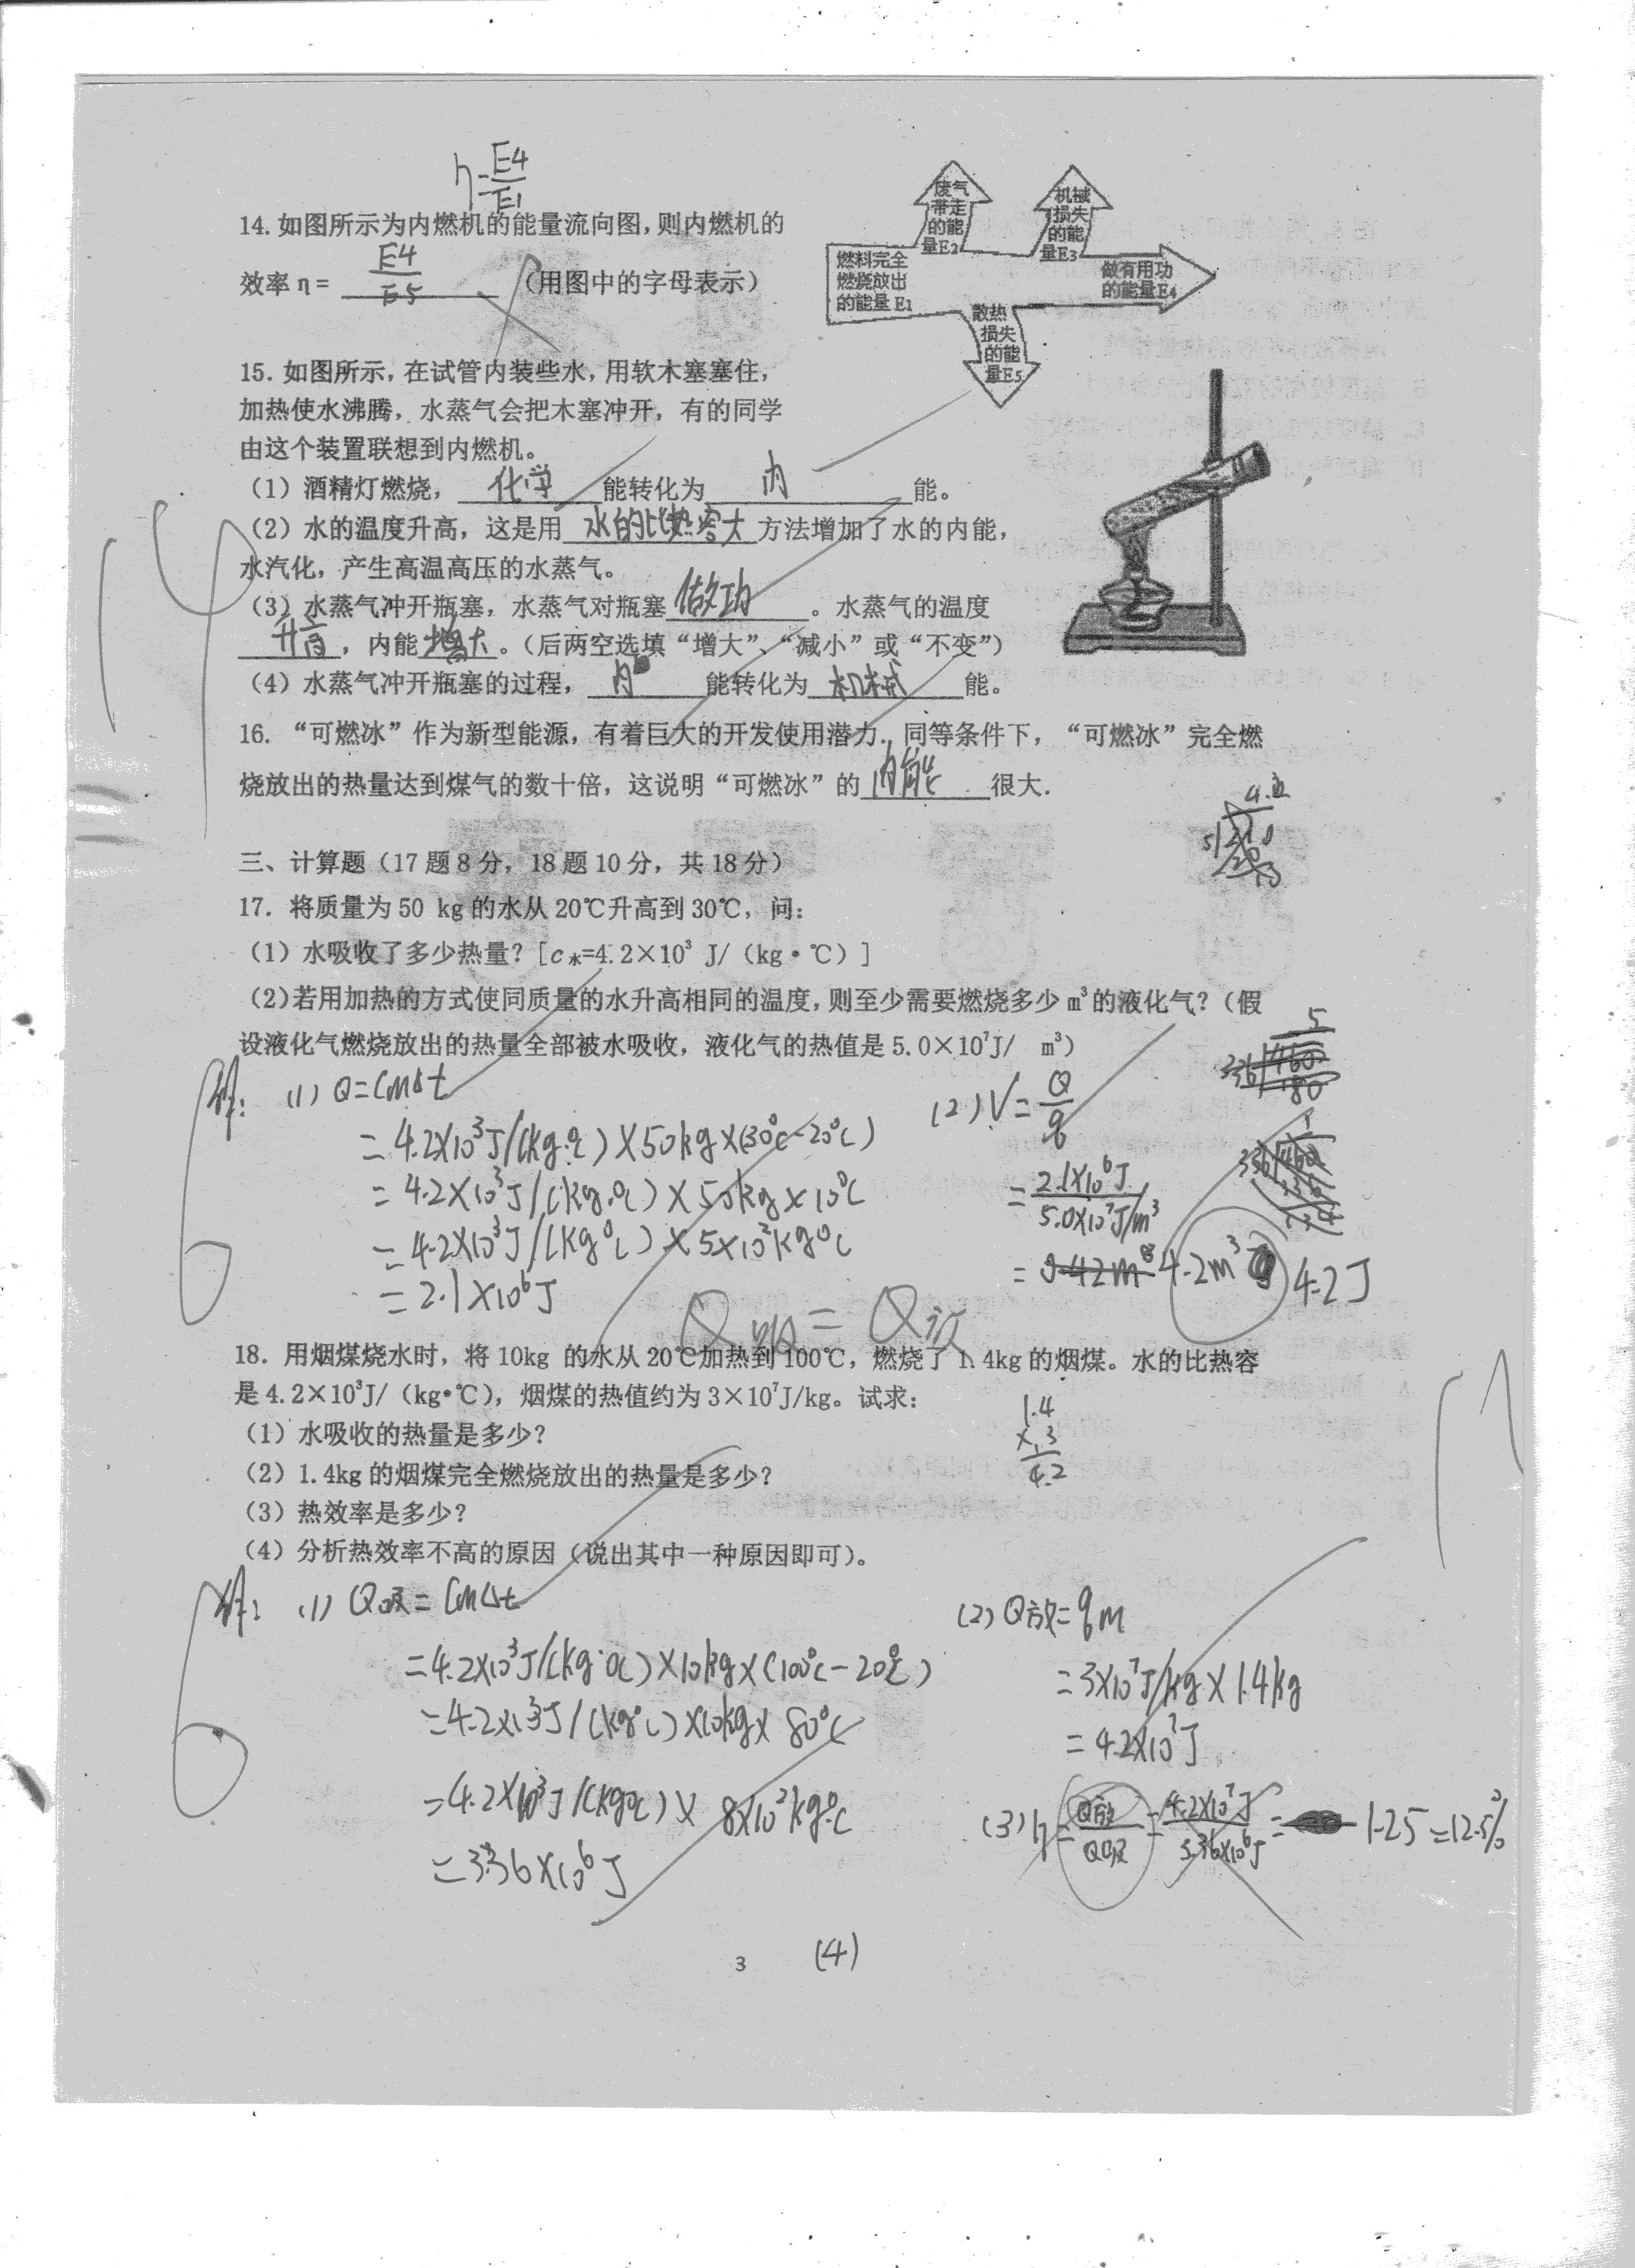 η=E4/E1
14. 如图所示为内燃机的能量流向图，则内燃机的
效率 η= E4/E5 （用图中的字母表示）
废气带走的能量E2
机械损失的能量E3
燃料完全燃烧放出的能量E1
做有用功的能量E4
散热损失的能量E5
15. 如图所示，在试管内装些水，用软木塞塞住，
加热使水沸腾，水蒸气会把木塞冲开，有的同学
由这个装置联想到内燃机。
（1）酒精灯燃烧，化学能转化为内能。
（2）水的温度升高，这是用水的比热容大方法增加了水的内能，
水汽化，产生高温高压的水蒸气。
（3）水蒸气冲开瓶塞，水蒸气对瓶塞做功。水蒸气的温度
升高，内能增大。（后两空选填“增大”、“减小”或“不变”）
（4）水蒸气冲开瓶塞的过程，内能转化为机械能。
16. “可燃冰”作为新型能源，有着巨大的开发使用潜力．同等条件下，“可燃冰”完全燃
烧放出的热量达到煤气的数十倍，这说明“可燃冰”的内能很大．
三、计算题（17题8分，18题10分，共18分）
17. 将质量为50 kg的水从20℃升高到30℃，问：
（1）水吸收了多少热量？[c水=4.2×10³ J/（kg·℃）]
（2）若用加热的方式使同质量的水升高相同的温度，则至少需要燃烧多少m³的液化气？（假
设液化气燃烧放出的热量全部被水吸收，液化气的热值是5.0×10⁷J/ m³）
解：(1) Q=cmΔt
=4.2×10³J/(kg·℃)×50kg×(30℃-20℃)
=4.2×10³J/(kg·℃)×50kg×10℃
=4.2×10³J/(kg℃)×5×10²kg℃
=2.1×10⁶J
(2) V=Q/q
=2.1×10⁶J/5.0×10⁷J/m³
= 4.2m³ 4.2J
Q吸=Q放
18. 用烟煤烧水时，将10kg 的水从20℃加热到100℃，燃烧了1.4kg的烟煤。水的比热容
是4.2×10³J/（kg•℃），烟煤的热值约为3×10⁷J/kg。试求：
（1）水吸收的热量是多少？
（2）1.4kg的烟煤完全燃烧放出的热量是多少？
（3）热效率是多少？
（4）分析热效率不高的原因（说出其中一种原因即可）。
1.4
×3
4.2
解：(1) Q吸=cmΔt
=4.2×10³J/(kg·℃)×10kg×(100℃-20℃)
=4.2×10³J/(kg℃)×10kg×80℃
=4.2×10³J/(kg℃)×8×10²kg·℃
=3.36×10⁶J
(2) Q放=qm
=3×10⁷J/kg×1.4kg
=4.2×10⁷J
(3) η=Q放/Q吸=4.2×10⁷J/3.36×10⁶J= 1.25=12.5%
(4)
3